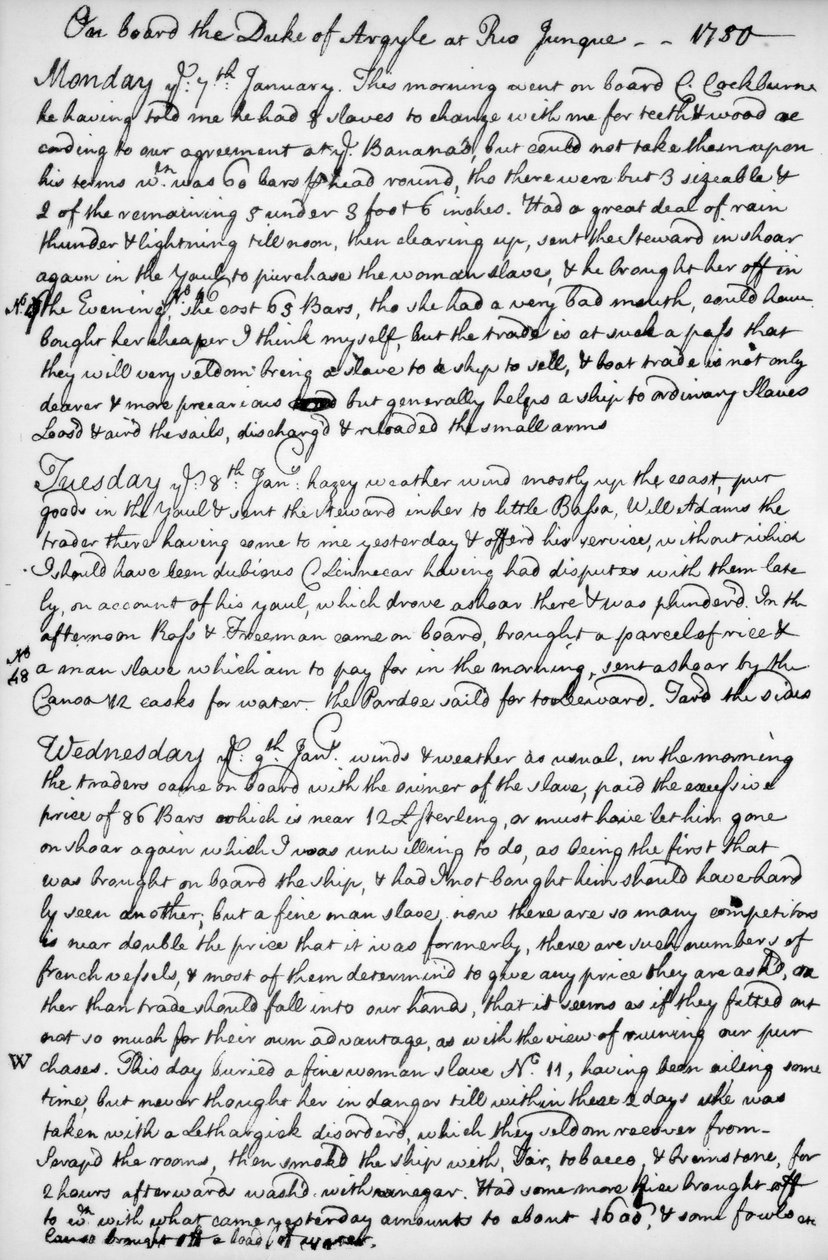 On board the Duke of Argyle at Rio Junque - - 1750
Monday ye. 7th January. This morning went on board C. Cockburne
he having told me he had 8 slaves to change with me for teeth & wood ac
cording to our agreement at ye. Bananas, but could not take them upon
his terms wch. was 60 bars p head round, tho there were but 3 sizeable &
2 of the remaining 5 under 3 foot 6 inches. Had a great deal of rain
thunder & lightning till noon, then clearing up, sent the Steward in shoar
again in the Yaul, to purchase the woman slave, & he brought her off in
No. the Evening, No 46 she cost 63 Bars, tho she had a very bad mouth, could have
bought her cheaper I think myself, but the trade is at such a pass that
they will very seldom bring a slave to a ship to sell, & boat trade is not only
dearer & more precarious but generally helps a ship to ordinary Slaves
Loosd & aird the sails, dischargd & reloaded the small arms
Tuesday ye. 8th. Jany: hazey weather wind mostly up the coast, put
goods in the Yaul & sent the Steward in her to little Bassa, Will Adams the
trader there having come to me yesterday & offerd his service, without which
I should have been dubious C Linnecar having had disputes with them late
ly, on account of his yaul, which drove ashoar there & was plunderd. In the
afternoon Ross & Freeman came on board, brought a parcel of rice &
No 48 a man slave which am to pay for in the morning, sent ashoar by the
Canoa 12 casks for water. the Pardoe saild for too leeward. Tard the sides
Wednesday ye. 9th. Jany. winds & weather as usual, in the morning
the traders came on board with the owner of the slave, paid the excessive
price of 86 Bars which is near 12£ sterling, or must have let him gone
on shoar again which I was unwilling to do, as being the first that
was brought on board the ship, & had I not bought him should have hard
ly seen another; but a fine man slave, now there are so many competitors
is near double the price that it was formerly, there are such numbers of
french vessels, & most of them determind to give any price they are askd, ra
ther than trade should fall into our hands, that it seems as if they fitted out
not so much for their own advantage, as with the view of ruining our pur
W chases. This day buried a fine woman slave No. 11, having been ailing some
time, but never thought her in danger till within these 2 days she was
taken with a Lethargick disorderd, which they seldom recover from -
Scrap'd the rooms, then smok'd the ship with, Tar, tobacco, & brimstone, for
2 hours afterwards wash'd with vinegar. Had some more Rice brought off
to wch. with what came yesterday amounts to about 1600, & some fowls
Canoa brought off a load of water.